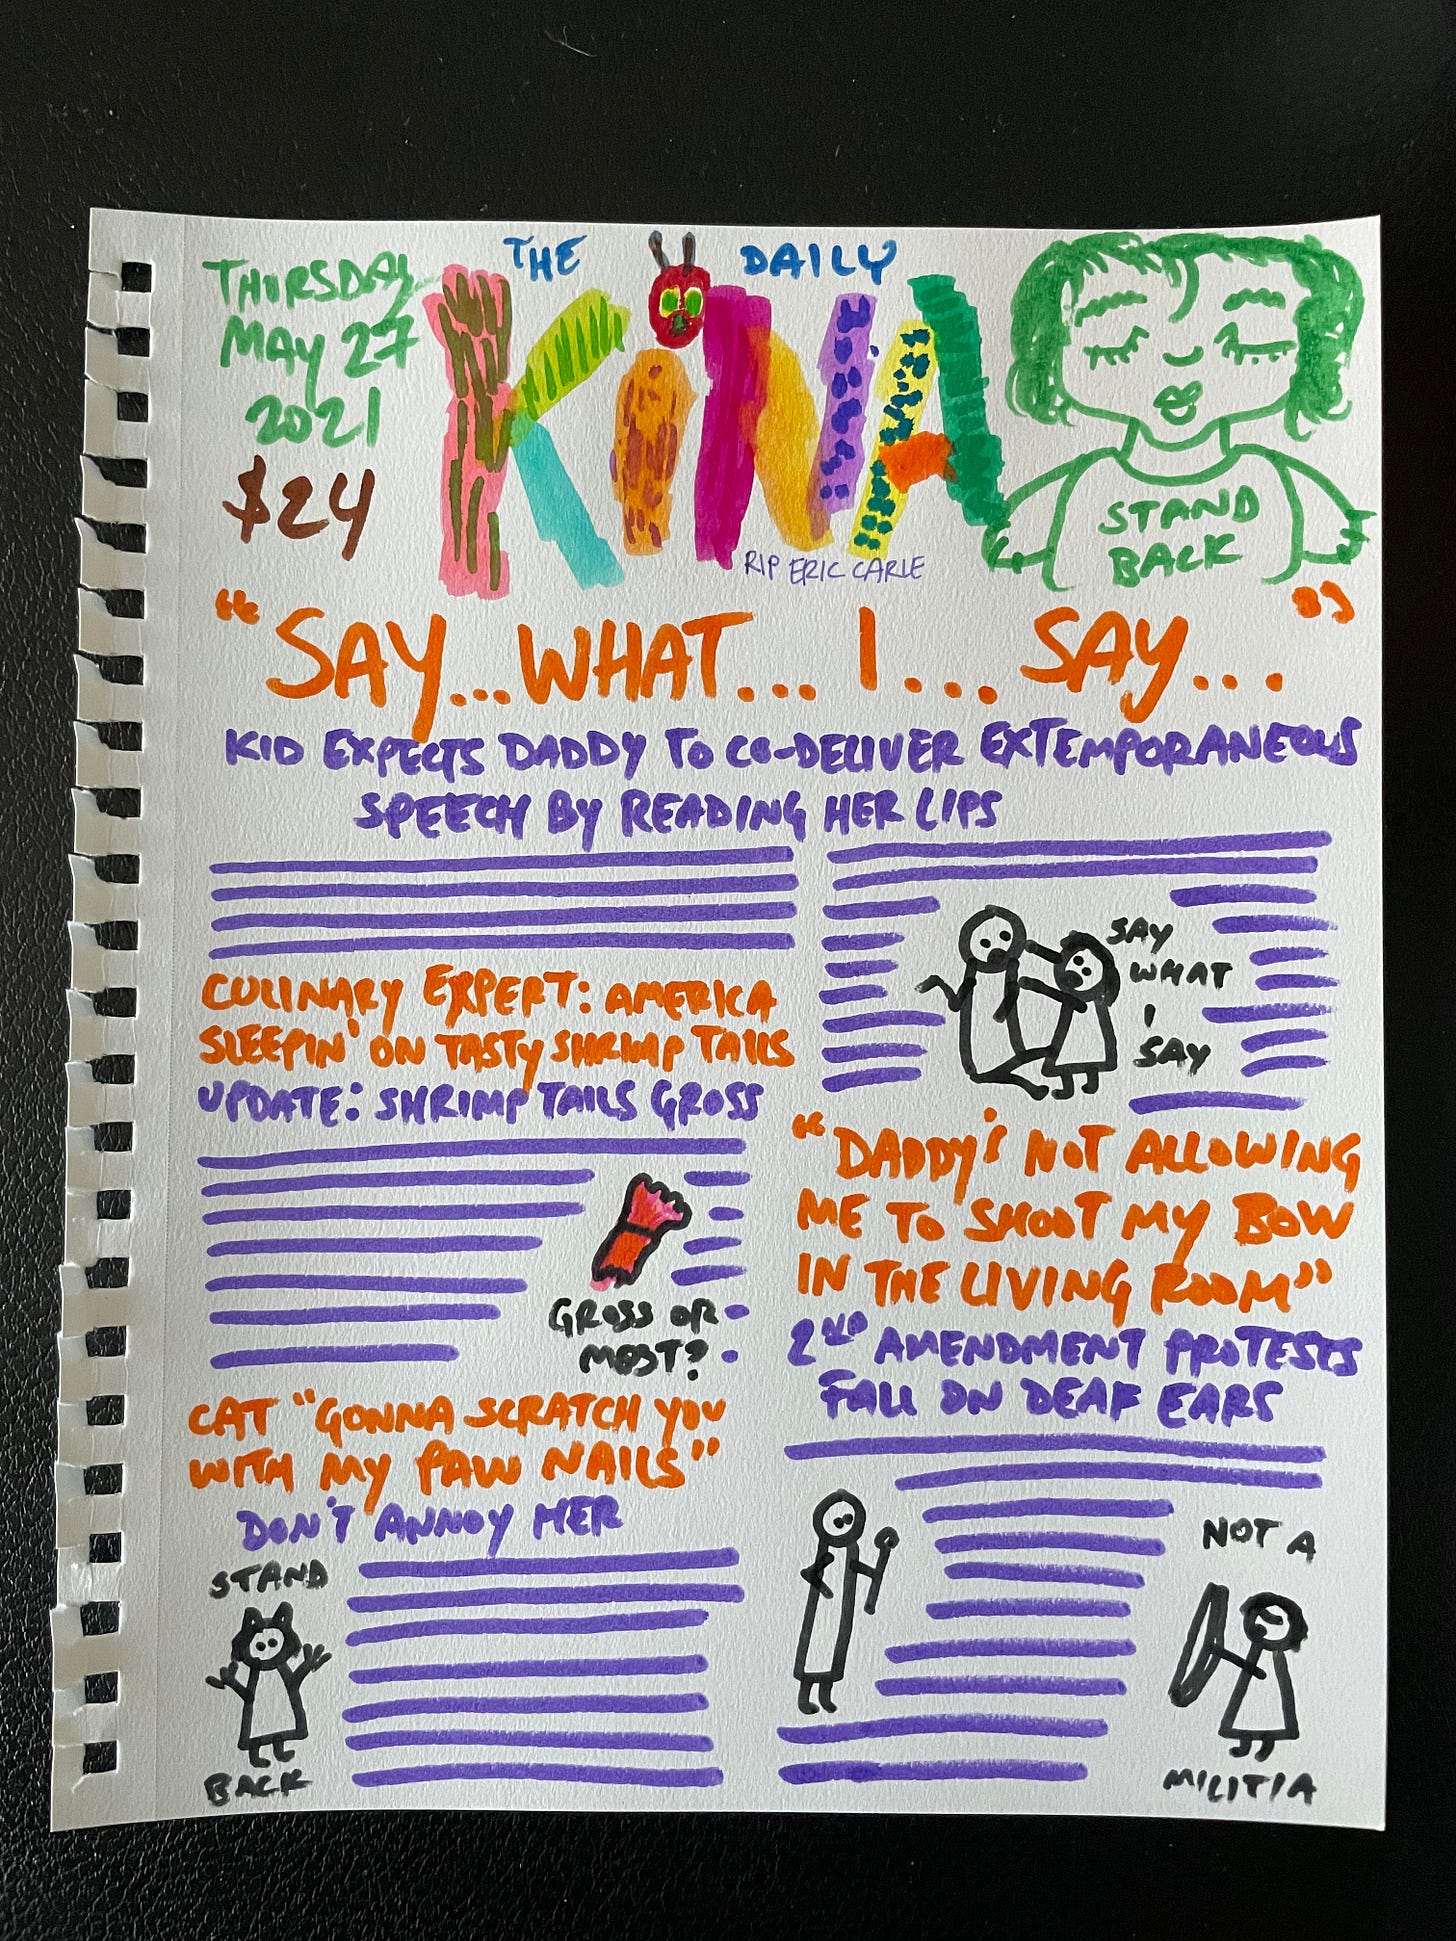 THURSDAY
MAY 27
2021
$24
THE DAILY
KiNA
RIP ERIC CARLE
STAND
BACK
"SAY...WHAT...I...SAY..."
KID EXPECTS DADDY TO CO-DELIVER EXTEMPORANEOUS
SPEECH BY READING HER LIPS
SAY
WHAT
I
SAY
CULINARY EXPERT: AMERICA
SLEEPIN' ON TASTY SHRIMP TAILS
UPDATE: SHRIMP TAILS GROSS
GROSS OR
MOST?
CAT "GONNA SCRATCH YOU
WITH MY PAW NAILS"
DON'T ANNOY HER
STAND
BACK
"DADDY'S NOT ALLOWING
ME TO SHOOT MY BOW
IN THE LIVING ROOM"
2ND AMENDMENT PROTESTS
FALL ON DEAF EARS
NOT A
MILITIA